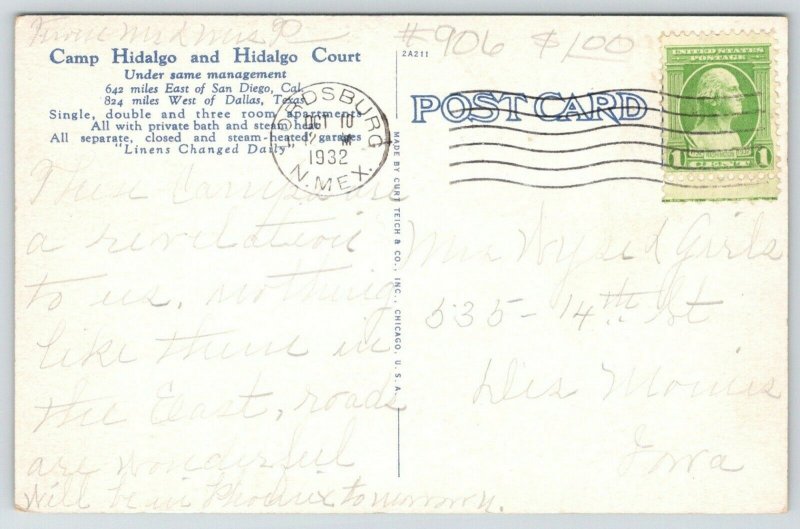 From Mr & Mrs P
# 906 $1.00
Camp Hidalgo and Hidalgo Court
Under same management
642 miles East of San Diego, Cal.
824 miles West of Dallas, Texas
Single, double and three room apartments
All with private bath and steam heat
All separate, closed and steam-heated garages
"Linens Changed Daily"
2A211
POST CARD
LORDSBURG
OCT 10
1932
N. MEX.
UNITED STATES
POSTAGE
1 CENT 1
MADE BY CURT TEICH & CO., INC., CHICAGO, U.S.A.
These Camps are
a revelation
to us, nothing
like them in
the East, roads
are wonderful
Will be in Phoenix tomorrow.
Mrs & Girls
535 - 14th St
Des Moines
Iowa